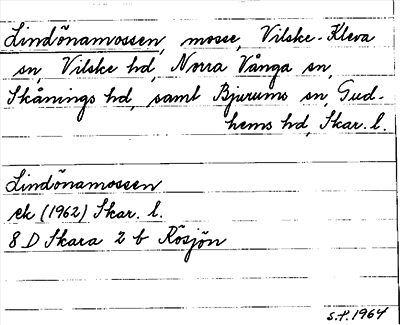 Lindönamossen, mosse, Vilske-Kleva
sn, Vilske hd, Norra Vånga sn,
Skånings hd, samt Bjurums sn, Gud-
hems hd, Skar. l.
Lindönamossen
ek (1962) Skar. l.
8 D Skara 2 b Rösjön
S.P. 1964